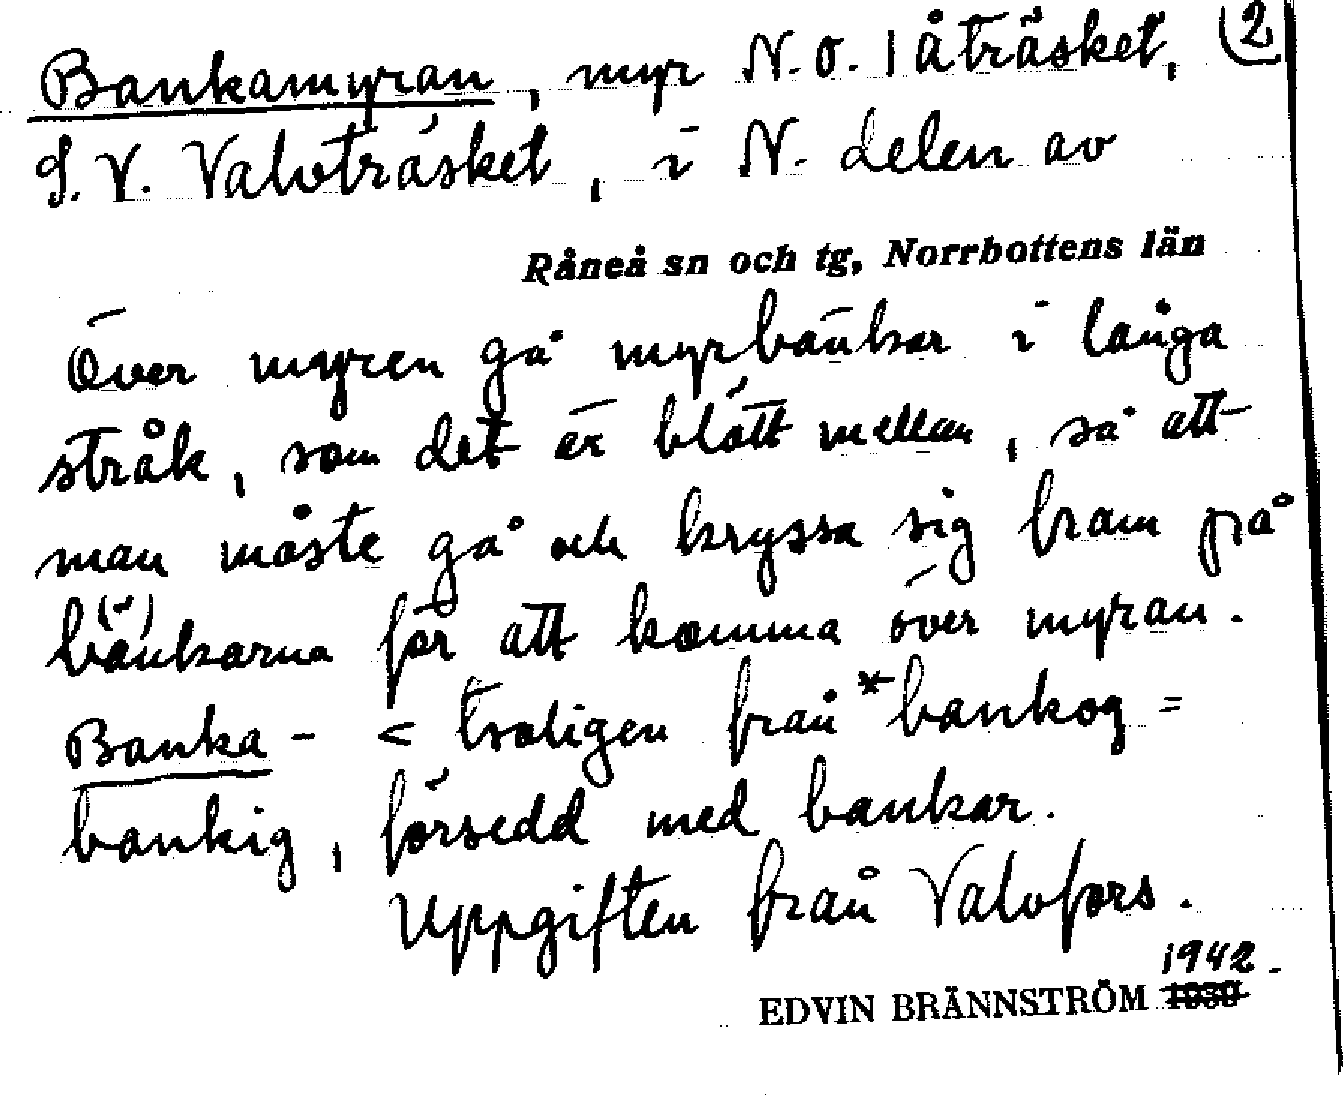 Bankamyran, myr N.O. Låträsket, (2)
S.V. Valvträsket, i N. delen av
Råneå sn och tg, Norrbottens län
Över myren gå myrbänkar i långa
stråk, som det är blött mellan, så att
man måste gå och kryssa sig fram på
bänkarna för att komma över myran.
Banka- < troligen från *bankog =
bankig, försedd med bankar.
Uppgiften från Valvfors.
1942.
EDVIN BRÄNNSTRÖM 1939